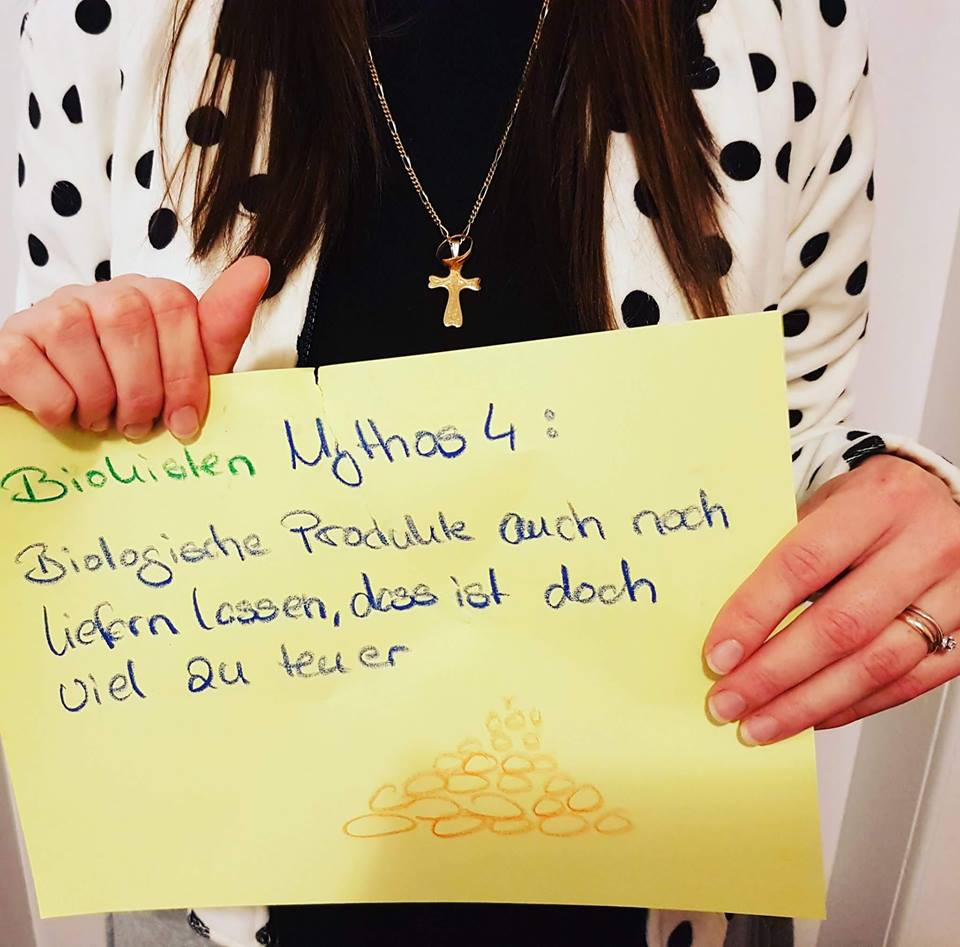 Biokisten Mythos 4:
Biologische Produkte auch noch
liefern lassen, dass ist doch
viel zu teuer